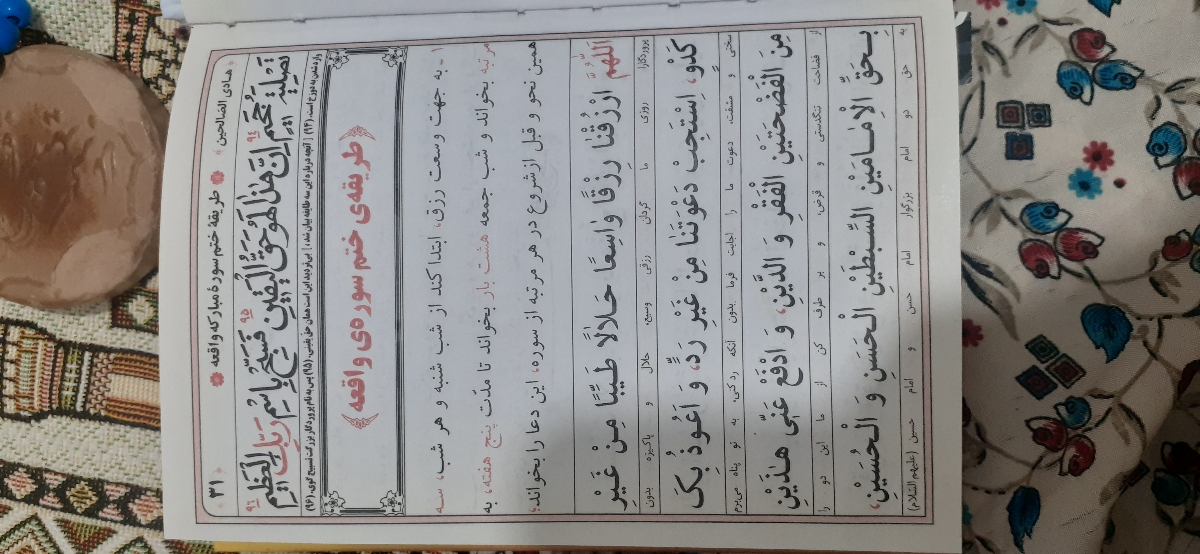 ۳۱ طریقهٔ ختم سورهٔ مبارکه واقعه هادی الصالحین
تَصْلِيَةُ جَحِيمٍ ۹٤ إِنَّ هٰذَا لَهُوَ حَقُّ الْيَقِينِ ۹٥ فَسَبِّحْ بِاسْمِ رَبِّكَ الْعَظِيمِ ۹٦
وارد شدن به دوزخ است. (۹۴) آنچه درباره این سه طایفه بیان شد، بی‌تردید این است همان حق یقینی. (۹۵) پس به نام پروردگار بزرگت تسبیح گوی. (۹۶)
طریقه‌ی ختم سوره‌ی واقعه
۱ - به جهت وسعت رزق، ابتدا کند از شب شنبه و هر شب، سه
مرتبه بخواند و شب جمعه هشت بار بخواند تا مدّت پنج هفته، به
همین نحو و قبل از شروع در هر مرتبه از سوره، این دعا را بخواند:
اَللّٰهُمَّ ارْزُقْنَا رِزْقًا وَاسِعًا حَلَالًا طَيِّبًا مِنْ غَيْرِ
پروردگارا روزی ما گردان رزقی وسیع، حلال و پاکیزه بدون
كَدٍّ، وَ اسْتَجِبْ دَعْوَتَنَا مِنْ غَيْرِ رَدٍّ، وَ اَعُوذُ بِكَ
سختی و مشقت، دعوت ما را اجابت فرما بدون آنکه رد کنی، به تو پناه می‌برم
مِنَ الْفَضْحَتَيْنِ الْفَقْرِ وَ الدَّيْنِ، وَ ادْفَعْ عَنّٖى هٰذَيْنِ
از فضاحت تنگدستی و قرض، و بر طرف کن از ما این دو را
بِحَقِّ الْاِمَامَيْنِ السِّبْطَيْنِ الْحَسَنِ وَ الْحُسَيْنِ،
به حق دو امام بزرگوار امام حسن و امام حسین (علیهم السّلام)